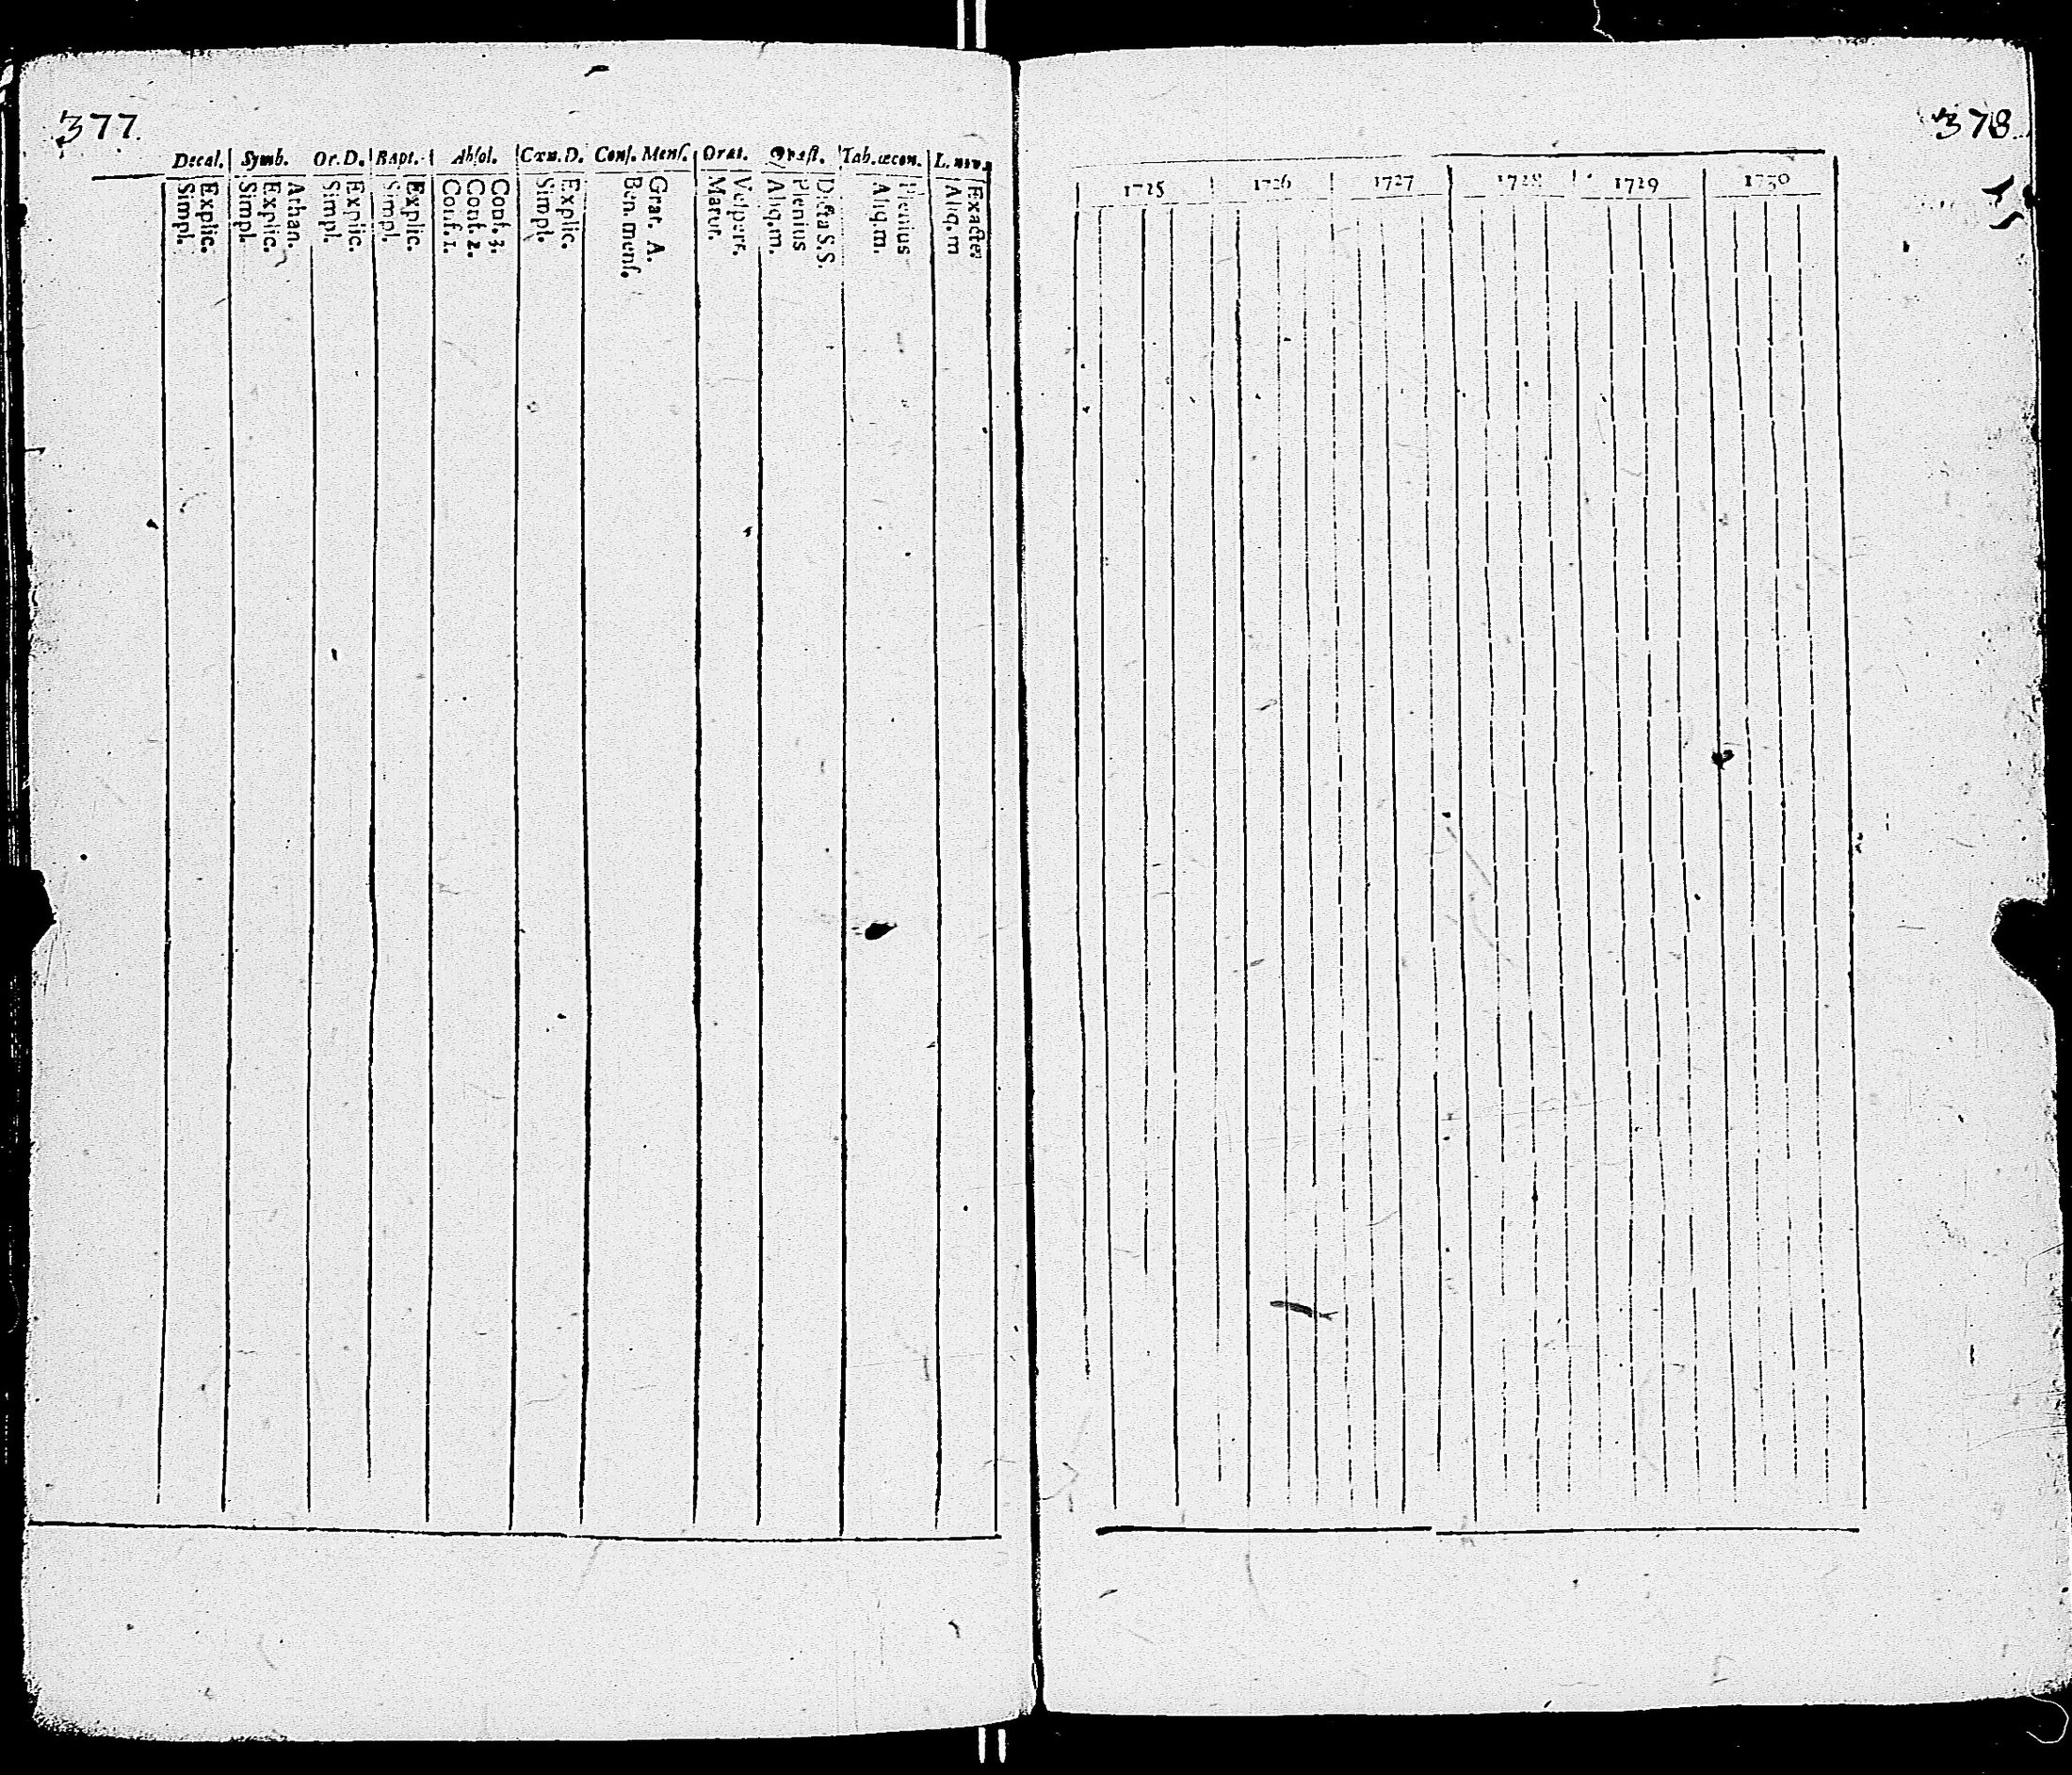 377.
Decal. Symb. Or. D. Bapt. Absol. Cœn. D. Conf. Mens. Orat. Quæst. Tab. œcon. L. nov.
Simpl. Explic. Simpl. Explic. Athan. Simpl. Explic. Simpl. Explic. Conf. 1. Conf. 2. Conf. 3. Simpl. Explic. Ben. mens. Grat. A. Matut. Vespert. Aliq. m. Plenius Dicta S.S. Aliq. m. Plenius Aliq. m Exacte
378.
1725 1726 1727 1728 1729 1730